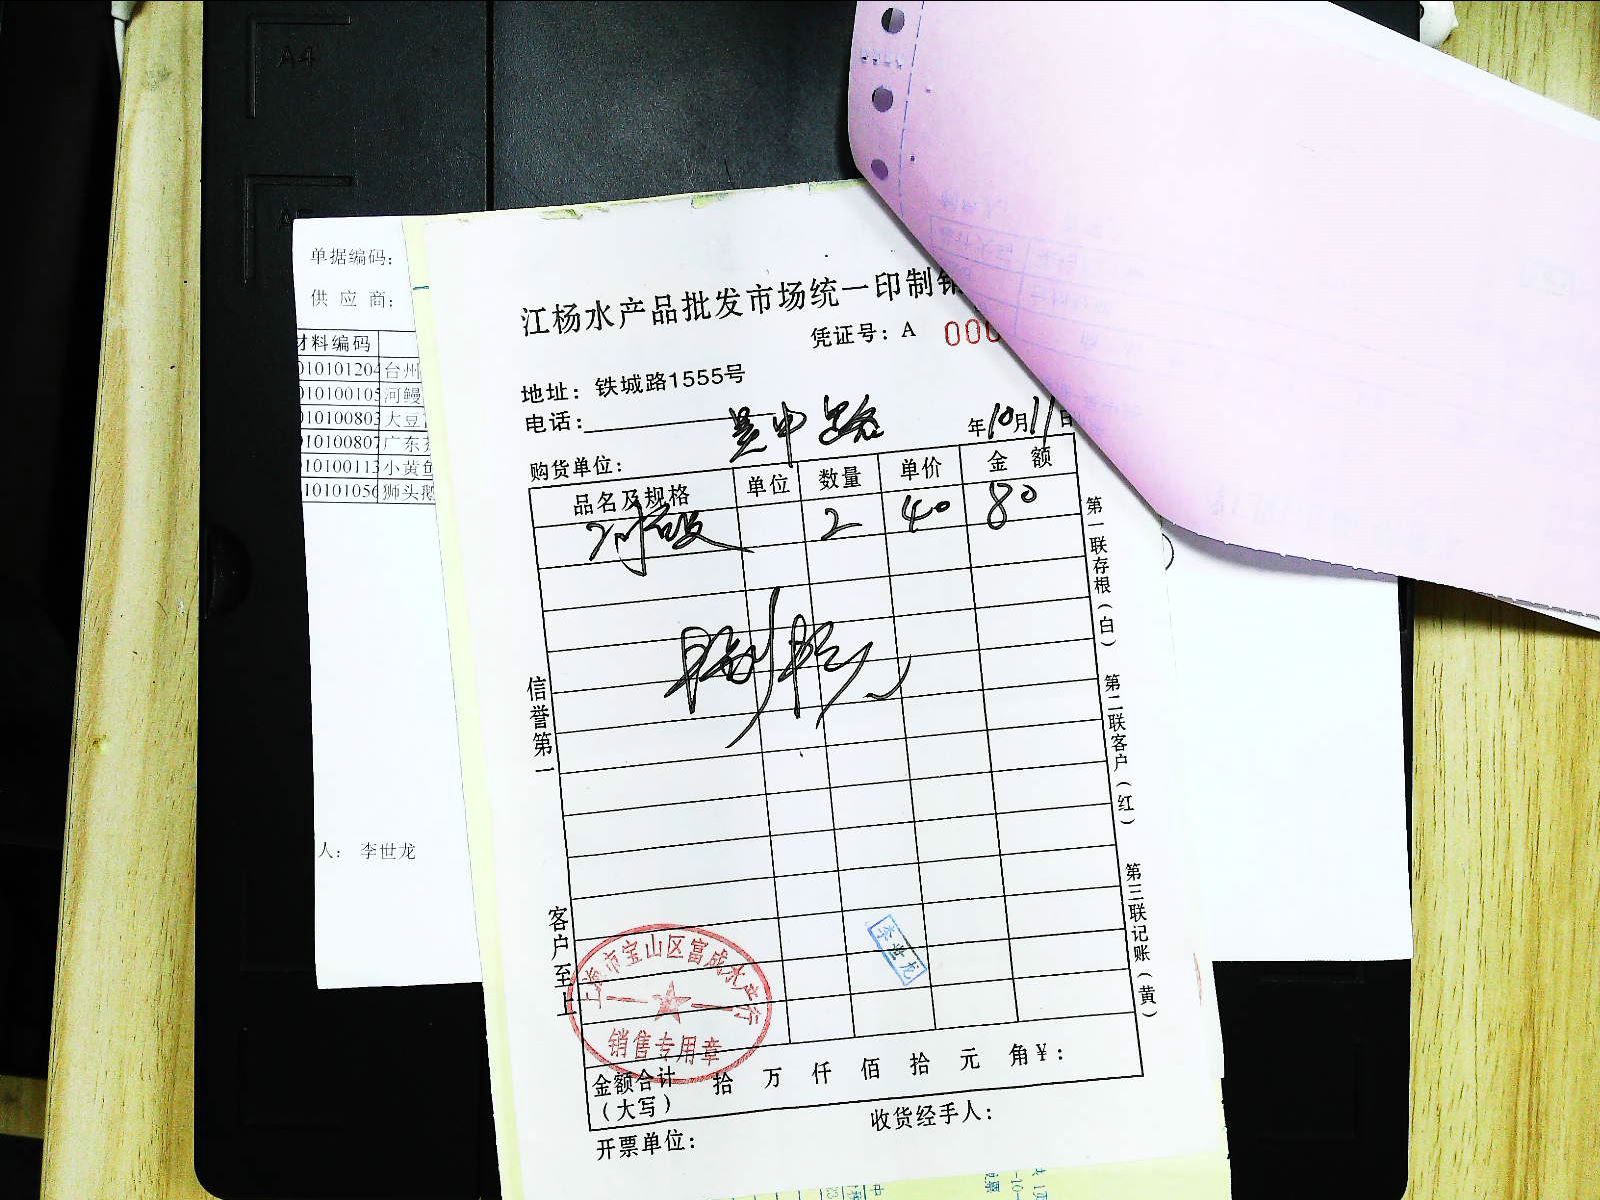 A4
单据编码:
供 应 商:
材料编码
010101204 台州
010100105 河鳗
010100803 大豆
010100807 广东
010100113 小黄鱼
010101056 狮头鹅
人: 李世龙
江杨水产品批发市场统一印制销
凭证号: A 000
地址: 铁城路1555号
电话:
吴中路
年10月11日
购货单位:
品名及规格 单位 数量 单价 金 额
2 40 80
第一联存根(白) 第二联客户(红) 第三联记账(黄)
信誉第一
客户至上
李世龙
上海市宝山区富成水产行
销售专用章
金额合计(大写) 拾 万 仟 佰 拾 元 角 ¥:
开票单位:
收货经手人: